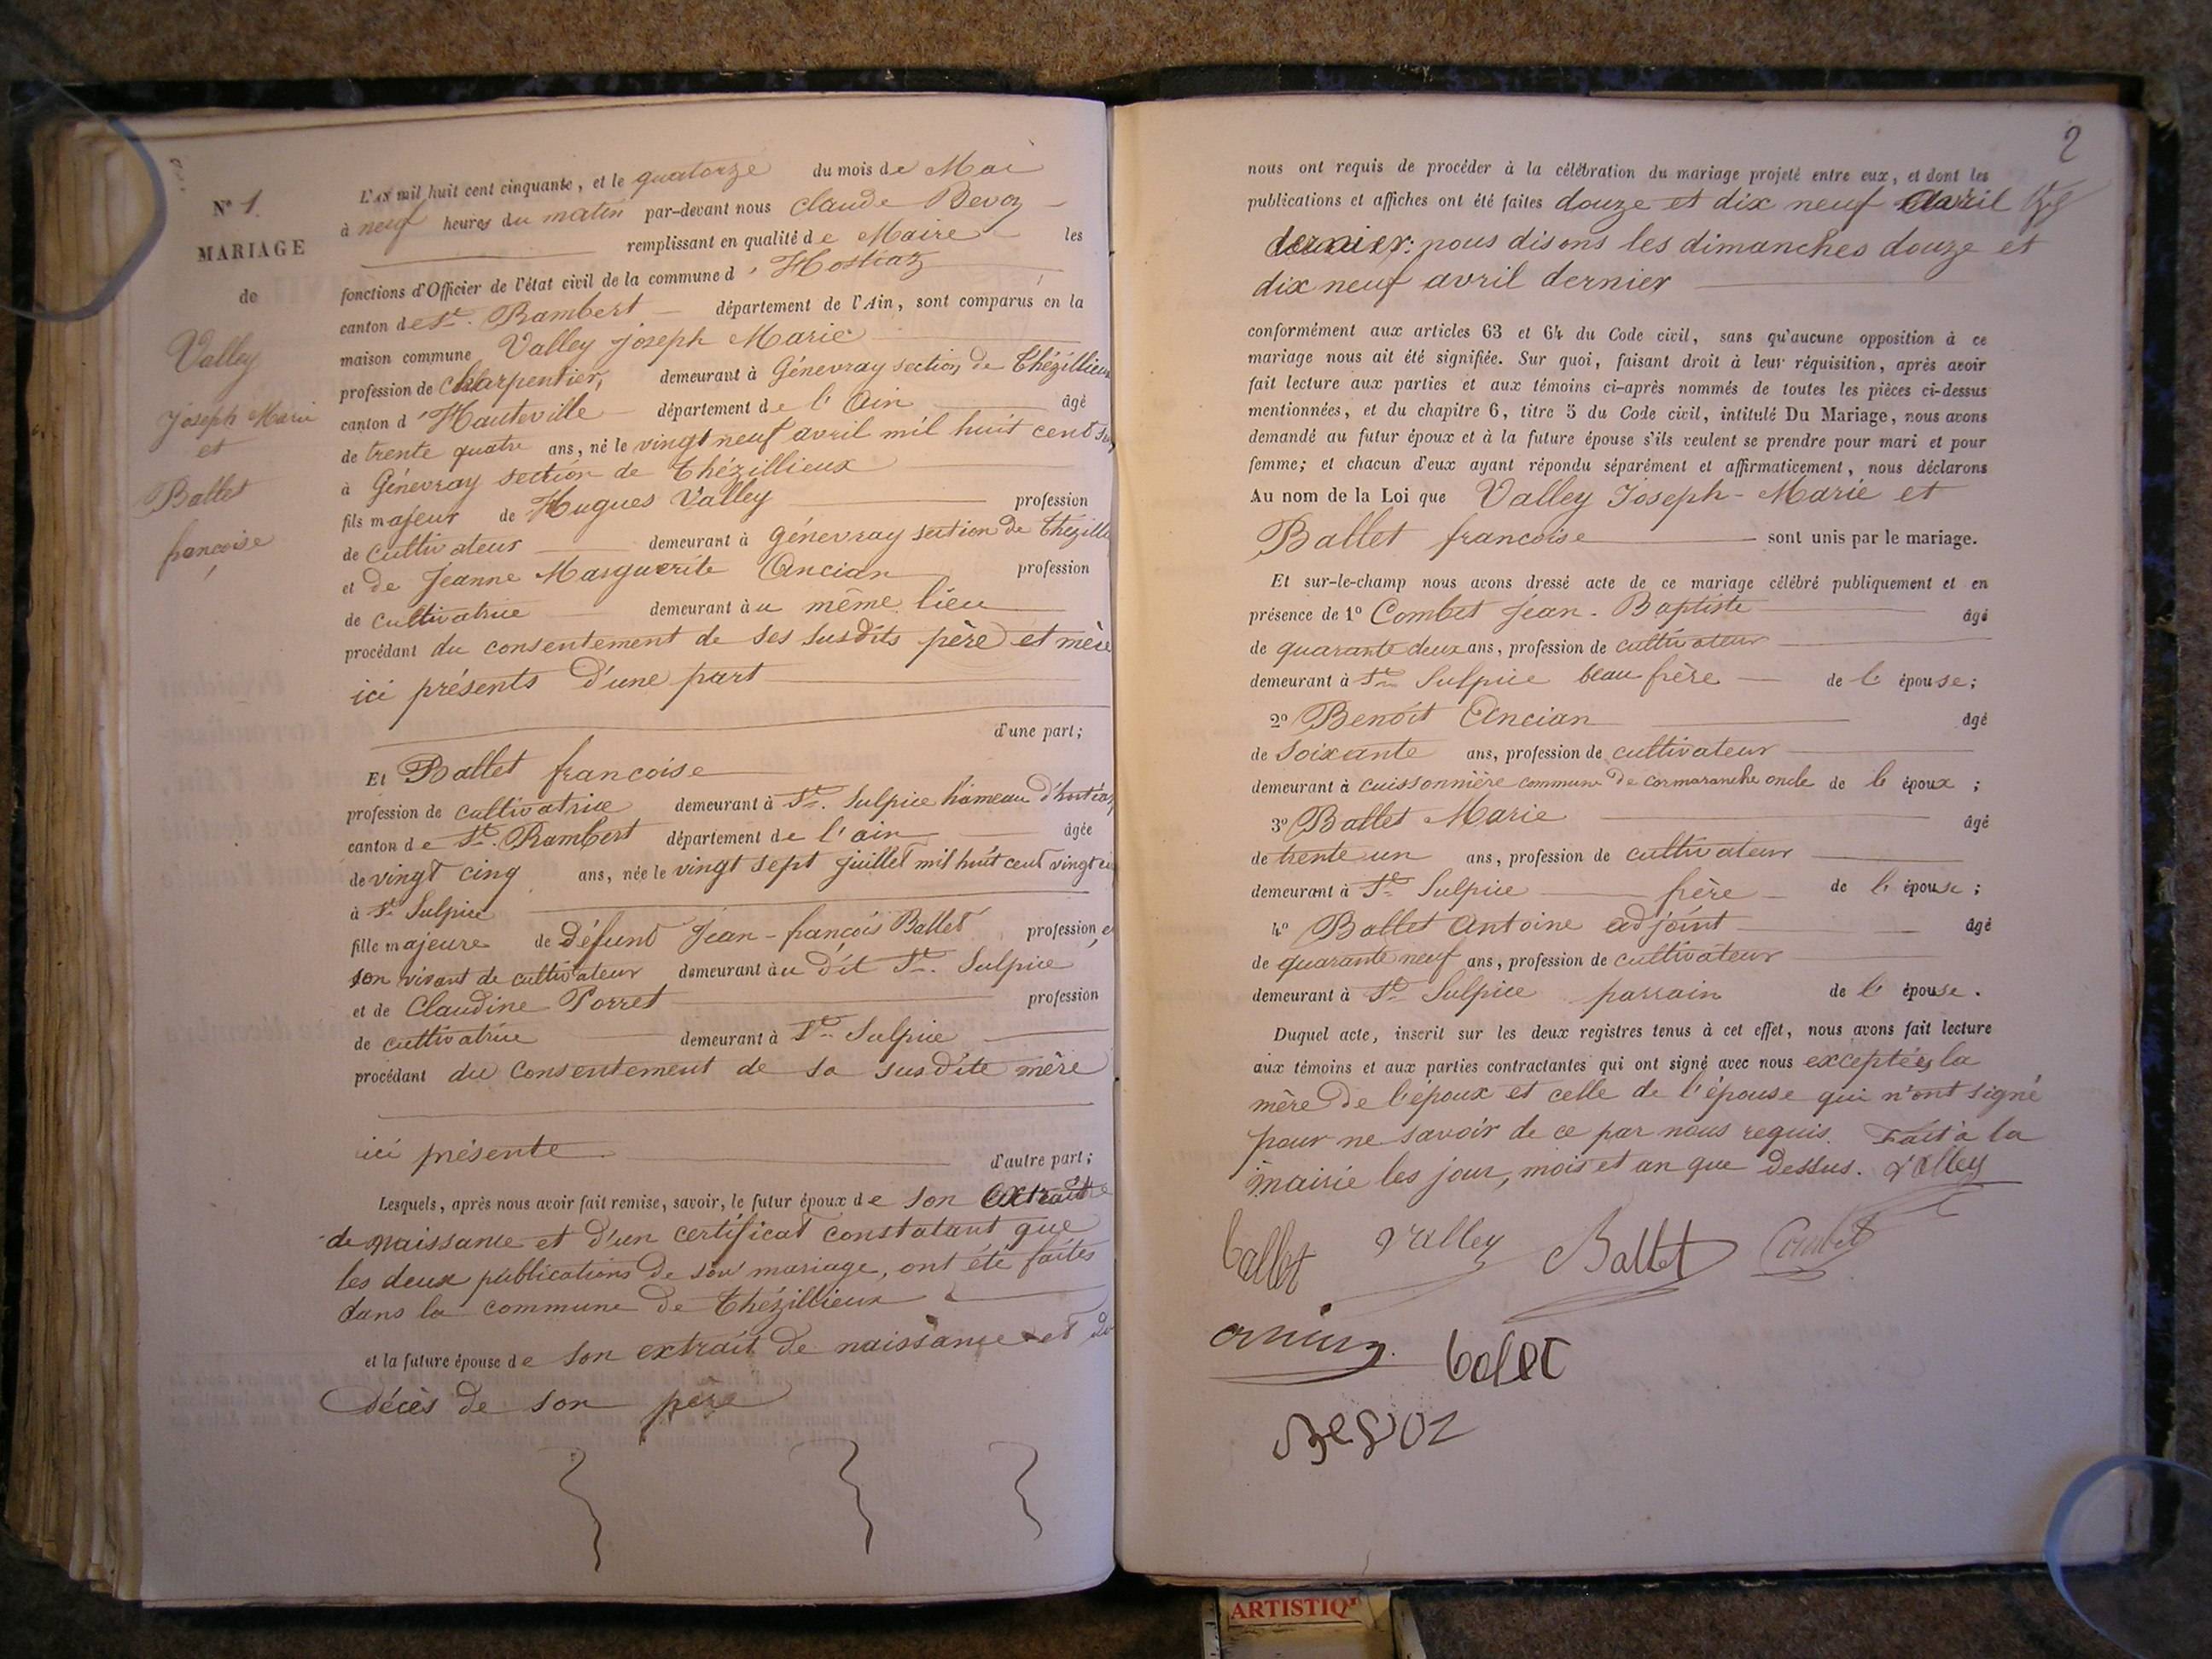 N° 1.
MARIAGE
de
Valley
Joseph Marie
et
Ballet
françoise
L'AN mil huit cent cinquante, et le quatorze du mois de Mai
à neuf heures du matin par-devant nous Claude Bevoz
remplissant en qualité de Maire les
fonctions d'Officier de l'état civil de la commune d'Hostiaz
canton de St. Rambert département de l'Ain, sont comparus en la
maison commune Valley joseph Marie
profession de Charpentier, demeurant à Génevray section de Thézillieux
canton d'Hauteville département de l'Ain âgé
de trente quatre ans, né le vingt neuf avril mil huit cent
à Génevray section de Thézillieux
fils majeur de Hugues Valley profession
de cultivateur demeurant à génevray section de Thézille
et de Jeanne Marguerite Ancian profession
de cultivatrice demeurant au même lieu
procédant du consentement de ses susdits père et mère
ici présents d'une part
d'une part;
Et Ballet francoise
profession de cultivatrice demeurant à St. Sulpice hameau
canton de St. Rambert département de l'ain âgée
de vingt cinq ans, née le vingt sept juillet mil huit cent vingt
à St Sulpice
fille majeure de défunt Jean-françois Ballet profession, e
son vivant de cultivateur demeurant au dit St. Sulpice
et de Claudine Porret profession
de cultivatrice demeurant à St. Sulpice
procédant du consentement de sa susdite mère
ici présente d'autre part;
Lesquels, après nous avoir fait remise, savoir, le futur époux de son extrait
de naissance et d'un certificat constatant que
les deux publications de son mariage, ont été faites
dans la commune de Thézillieux
et la future épouse de son extrait de naissance et de
décès de son père
2
nous ont requis de procéder à la célébration du mariage projeté entre eux, et dont les
publications et affiches ont été faites douze et dix neuf avril
dernier: nous disons les dimanches douze et
dix neuf avril dernier
conformément aux articles 63 et 64 du Code civil, sans qu'aucune opposition à ce
mariage nous ait été signifiée. Sur quoi, faisant droit à leur réquisition, après avoir
fait lecture aux parties et aux témoins ci-après nommés de toutes les pièces ci-dessus
mentionnées, et du chapitre 6, titre 5 du Code civil, intitulé Du Mariage, nous avons
demandé au futur époux et à la future épouse s'ils veulent se prendre pour mari et pour
femme; et chacun d'eux ayant répondu séparément et affirmativement, nous déclarons
Au nom de la Loi que Valley Joseph-Marie et
Ballet francoise sont unis par le mariage.
Et sur-le-champ nous avons dressé acte de ce mariage célébré publiquement et en
présence de 1° Combet Jean-Baptiste âgé
de quarante deux ans, profession de cultivateur
demeurant à St. Sulpice beau frère de l'épouse;
2° Benoît Ancian âgé
de soixante ans, profession de cultivateur
demeurant à cuissonnière commune de cormaranche oncle de l'époux;
3° Ballet Marie âgé
de trente un ans, profession de cultivateur
demeurant à St Sulpice frère de l'épouse;
4° Ballet Antoine adjoint âgé
de quarante neuf ans, profession de cultivateur
demeurant à St. Sulpice parrain de l'épouse.
Duquel acte, inscrit sur les deux registres tenus à cet effet, nous avons fait lecture
aux témoins et aux parties contractantes qui ont signé avec nous exceptées la
mère de l'époux et celle de l'épouse qui n'ont signé
pour ne savoir de ce par nous requis. Fait à la
mairie les jour, mois et an que dessus. Valley
ballet Valley Ballet Combet
balet
Bevoz
ARTISTIQ